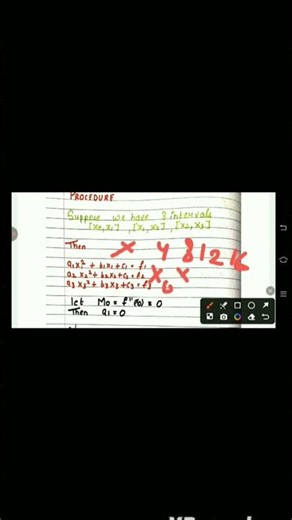 PROCEDURE
Suppose we have 3 intervals
[x₀,x₁] , [x₁,x₂] , [x₂,x₃]
Then
4 8 12 16
a₁x₁² + b₁x₁ + c₁ = f₁
a₂x₂² + b₂x₂ + c₂ = f₂
a₃x₃² + b₃x₃ + c₃ = f₃
let M₀ = f''(0) = 0
Then a₁ = 0